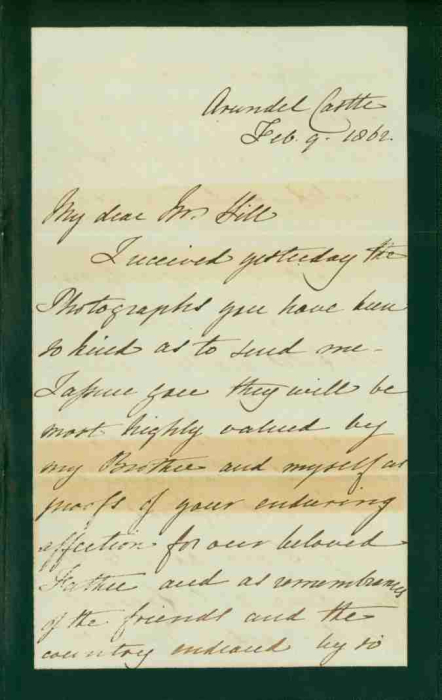 Arundel Castle
Feb. 9. 1862.
My dear Mr. Hill
I received yesterday the
Photographs you have been
so kind as to send me -
I assure you they will be
most highly valued by
my Brother and myself as
proofs of your enduring
affection for our beloved
Father and as remembrances
of the friends and the
country endeared by so